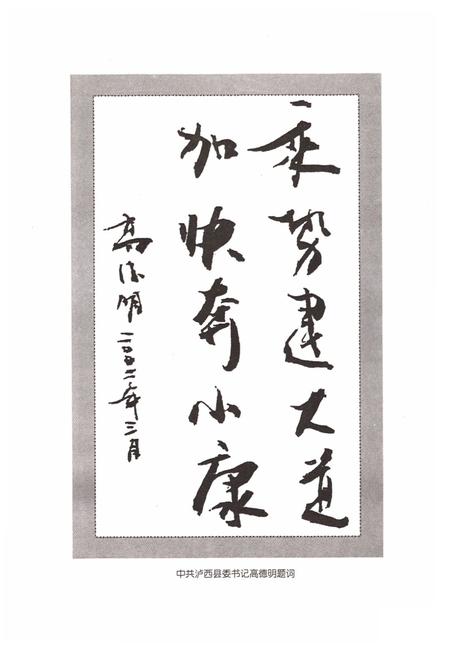 乘势建大道
加快奔小康
高德明 二〇〇二年三月
中共泸西县委书记高德明题词